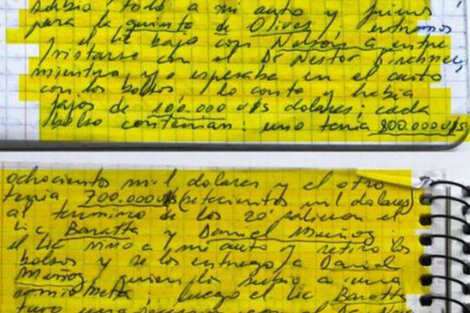 subio, todo a mi auto y fuimos
para la quinta de Olivos, entramos
y el bajo con Nelson a entre
vistarse con el Dr Nestor Kirchner,
mientras yo esperaba en el auto
con los bolsos, lo conte y habia
fajos de 100.000 u$s dolares; cada
bolso contenian: uno tenia 800.000 u$s
ochocientos mil dolares y el otro
tenia 700.000 u$s (setecientos mil dolares)
al termino de los 20' salieron el
Lic Baratta y Daniel Muñoz;
el lic vino a mi auto y retiro los
bolsos y se los entrego a Daniel
Muñoz, quien los subio a una
camioneta, luego el lic Baratta
tuvo una reunion con el Dr